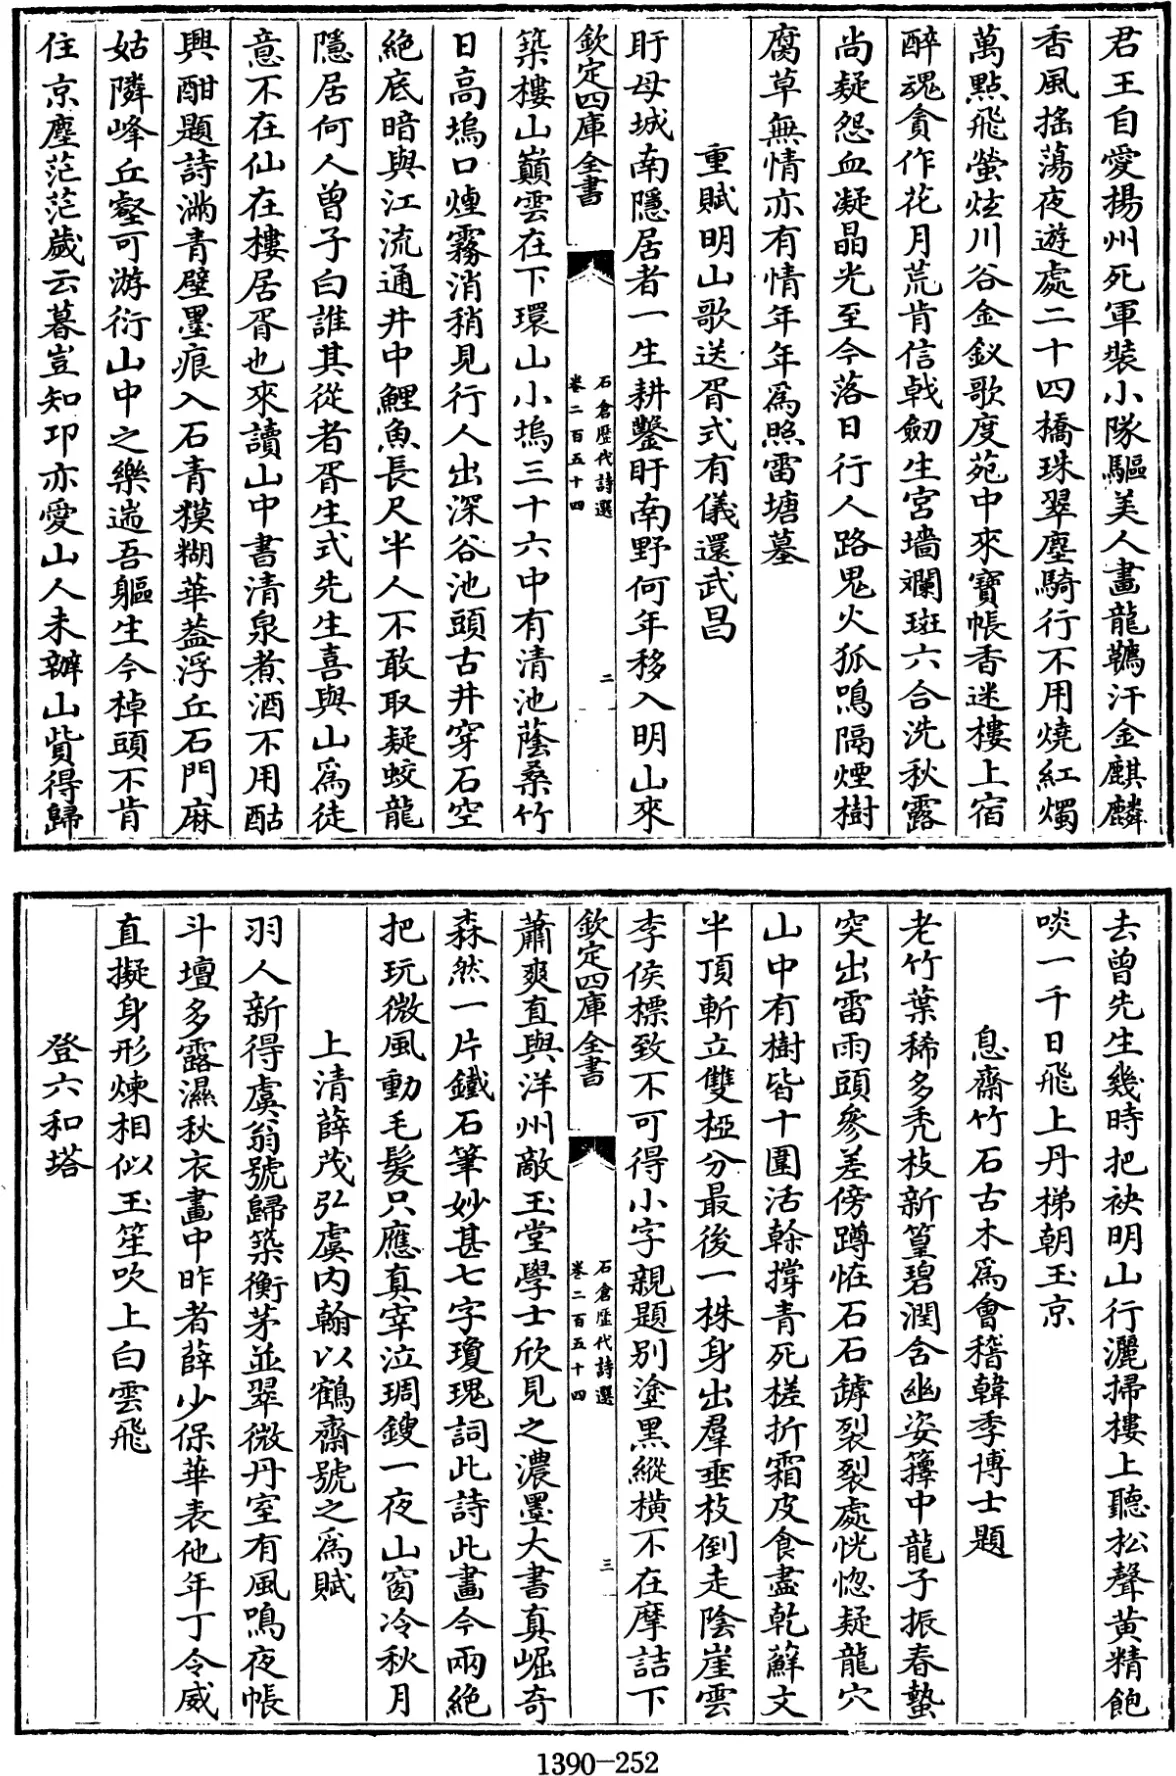 君王自愛揚州死軍裝小隊驅美人畫龍韉汗金麒麟
香風搖蕩夜遊處二十四橋珠翠塵騎行不用燒紅燭
萬點飛螢炫川谷金釵歌度苑中來寶帳香迷樓上宿
醉魂貪作花月荒肯信戟劒生宮墻斕斑六合洗秋露
尚疑怨血凝晶光至今落日行人路鬼火狐鳴隔煙樹
腐草無情亦有情年年為照雷塘墓
重賦明山歌送胥式有儀還武昌
盱母城南隱居者一生耕鑿盱南野何年移入明山來
欽定四庫全書
石倉歷代詩選
卷二百五十四
二
築樓山巔雲在下環山小塢三十六中有清池蔭桑竹
日高塢口煙霧消稍見行人出深谷池頭古井穿石空
絶底暗與江流通井中鯉魚長尺半人不敢取疑蛟龍
隱居何人曾子白誰其從者胥生式先生喜與山為徒
意不在仙在樓居胥也來讀山中書清泉煮酒不用酤
興酣題詩滿青壁墨痕入石青模糊華葢浮丘石門麻
姑隣峰丘壑可游衍山中之樂遄吾軀生今掉頭不肯
住京塵茫茫歲云暮豈知卭亦愛山人未辦山貲得歸
去曾先生幾時把袂明山行灑掃樓上聽松聲黄精飽
啖一千日飛上丹梯朝玉京
息齋竹石古木為會稽韓季博士題
老竹葉稀多禿枝新篁碧潤含幽姿籜中龍子振春蟄
突出雷雨頭參差傍蹲恠石石罅裂裂處恍惚疑龍穴
山中有樹皆十圍活榦撐青死槎折霜皮食盡乾蘚文
半頂斬立雙椏分最後一株身出羣垂枝倒走陰崖雲
李侯標致不可得小字親題别塗黑縱横不在摩詰下
欽定四庫全書
石倉歷代詩選
卷二百五十四
三
蕭爽直與洋州敵玉堂學士欣見之濃墨大書真崛奇
森然一片鐵石筆妙甚七字瓊瑰詞此詩此畫今兩絶
把玩微風動毛髮只應真宰泣琱鎪一夜山窗冷秋月
上清薛茂弘虞内翰以鶴齋號之為賦
羽人新得虞翁號歸築衡茅並翠微丹室有風鳴夜帳
斗壇多露濕秋衣畫中昨者薛少保華表他年丁令威
直擬身形煉相似玉笙吹上白雲飛
登六和塔
1390-252